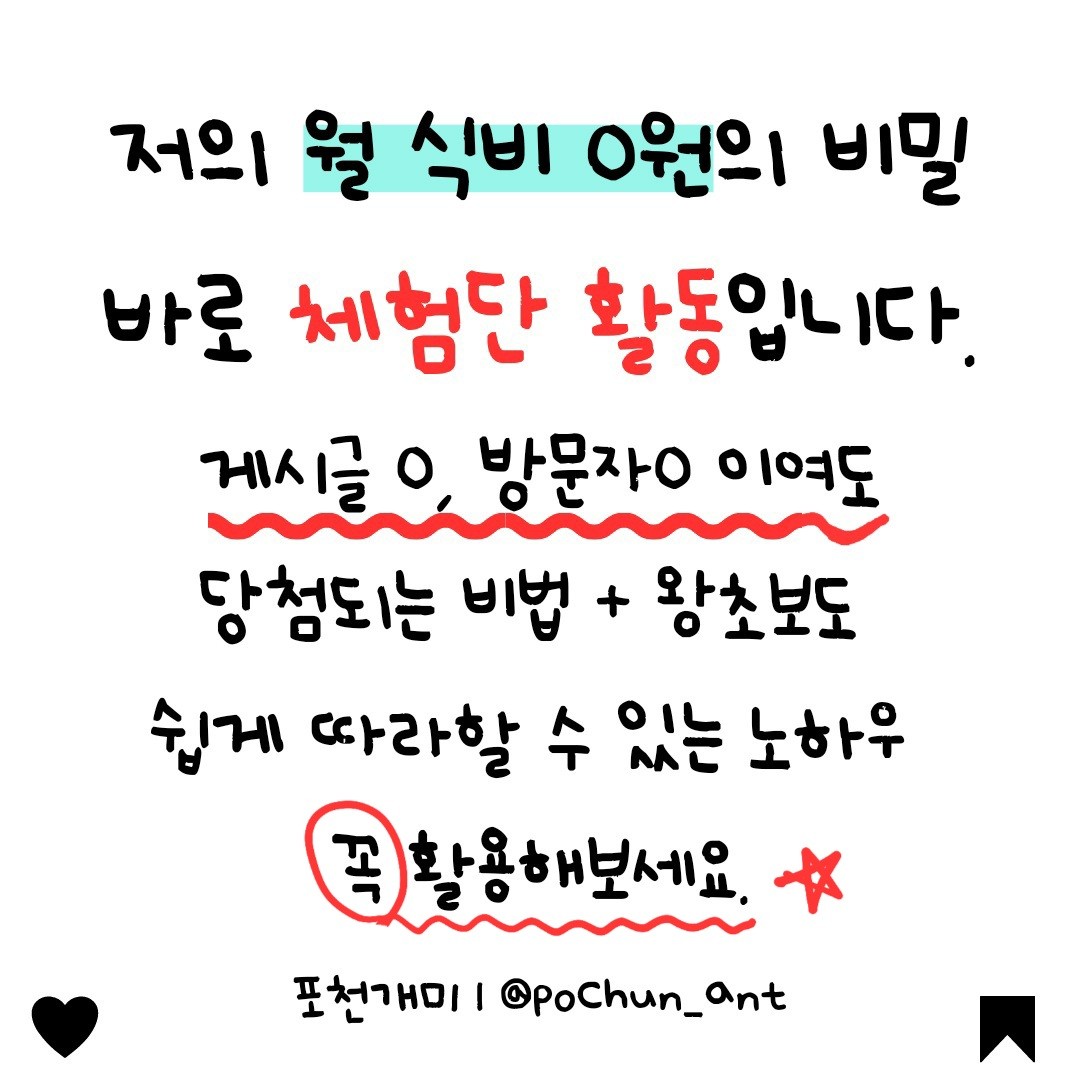 저의 월 식비 0원의 비밀
바로 체험단 활동입니다.
게시글 0, 방문자0 이여도
당첨되는 비법 + 왕초보도
쉽게 따라할 수 있는 노하우
꼭 활용해보세요.
포천개미 | @poChun_ant